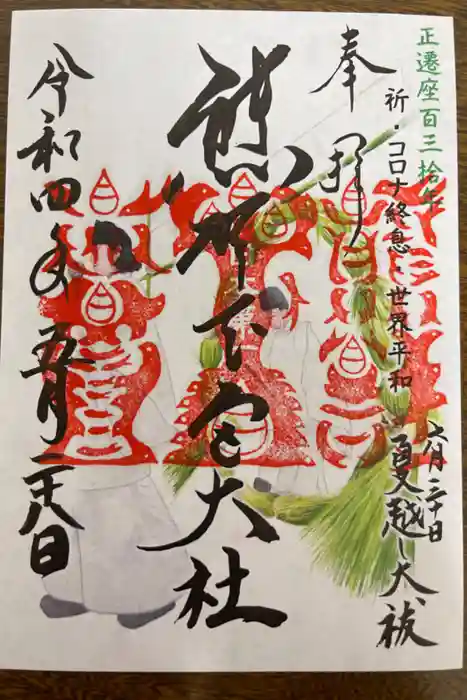 正遷座百三拾年
祈・コロナ終息・世界平和
六月三十日
夏越し大祓
奉拝
熊野本宮大社
令和四年五月二十八日